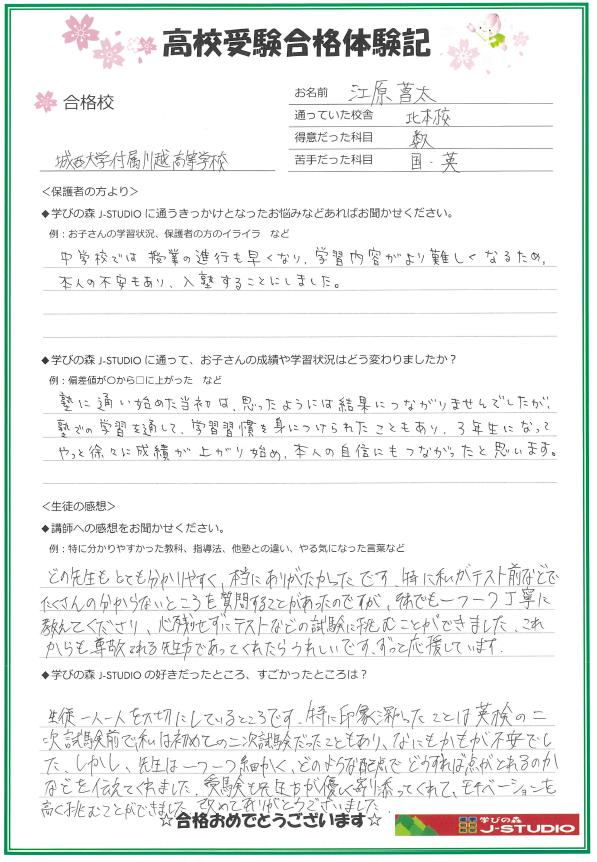 高校受験合格体験記
合格校
城西大学付属川越高等学校
お名前 江原 菖太
通っていた校舎 北本校
得意だった科目 数
苦手だった科目 国・英
＜保護者の方より＞
◆学びの森 J-STUDIO に通うきっかけとなったお悩みなどあればお聞かせください。
例：お子さんの学習状況、保護者の方のイライラ など
中学校では 授業の進行も早くなり、学習内容がより難しくなるため、
本人の不安もあり、入塾することにしました。
◆学びの森 J-STUDIO に通って、お子さんの成績や学習状況はどう変わりましたか？
例：偏差値が〇から□に上がった など
塾に通い始めた当初は、思ったようには結果につながりませんでしたが、
塾での学習を通して、学習習慣を身につけられたこともあり、3年生になって
やっと徐々に成績が上がり始め、本人の自信にもつながったと思います。
＜生徒の感想＞
◆講師への感想をお聞かせください。
例：特に分かりやすかった教科、指導法、他塾との違い、やる気になった言葉など
どの先生もとても分かりやすく、本当にありがたかったです。特に私がテスト前などで
たくさんの分からないところを質問することがあったのですが、それでも一つ一つ丁寧に
教えてくださり、心残せずにテストなどの試験に挑むことができました。これ
からも尊敬される先生方であってくれたらうれしいです。ずっと応援しています。
◆学びの森 J-STUDIO の好きだったところ、すごかったところは？
生徒一人一人を大切にしているところです。特に印象深かったことは英検の二
次試験前で、私は初めての二次試験だったこともあり、なにもかもが不安でし
た。しかし、先生は一つ一つ細かく、どのような配点でどうすれば点がとれるのか
などを伝えてくれました。受験も先生方が優しく寄り添ってくれて、モチベーションを
高く挑むことができました。改めてありがとうございました。
☆合格おめでとうございます☆
学びの森
J-STUDIO